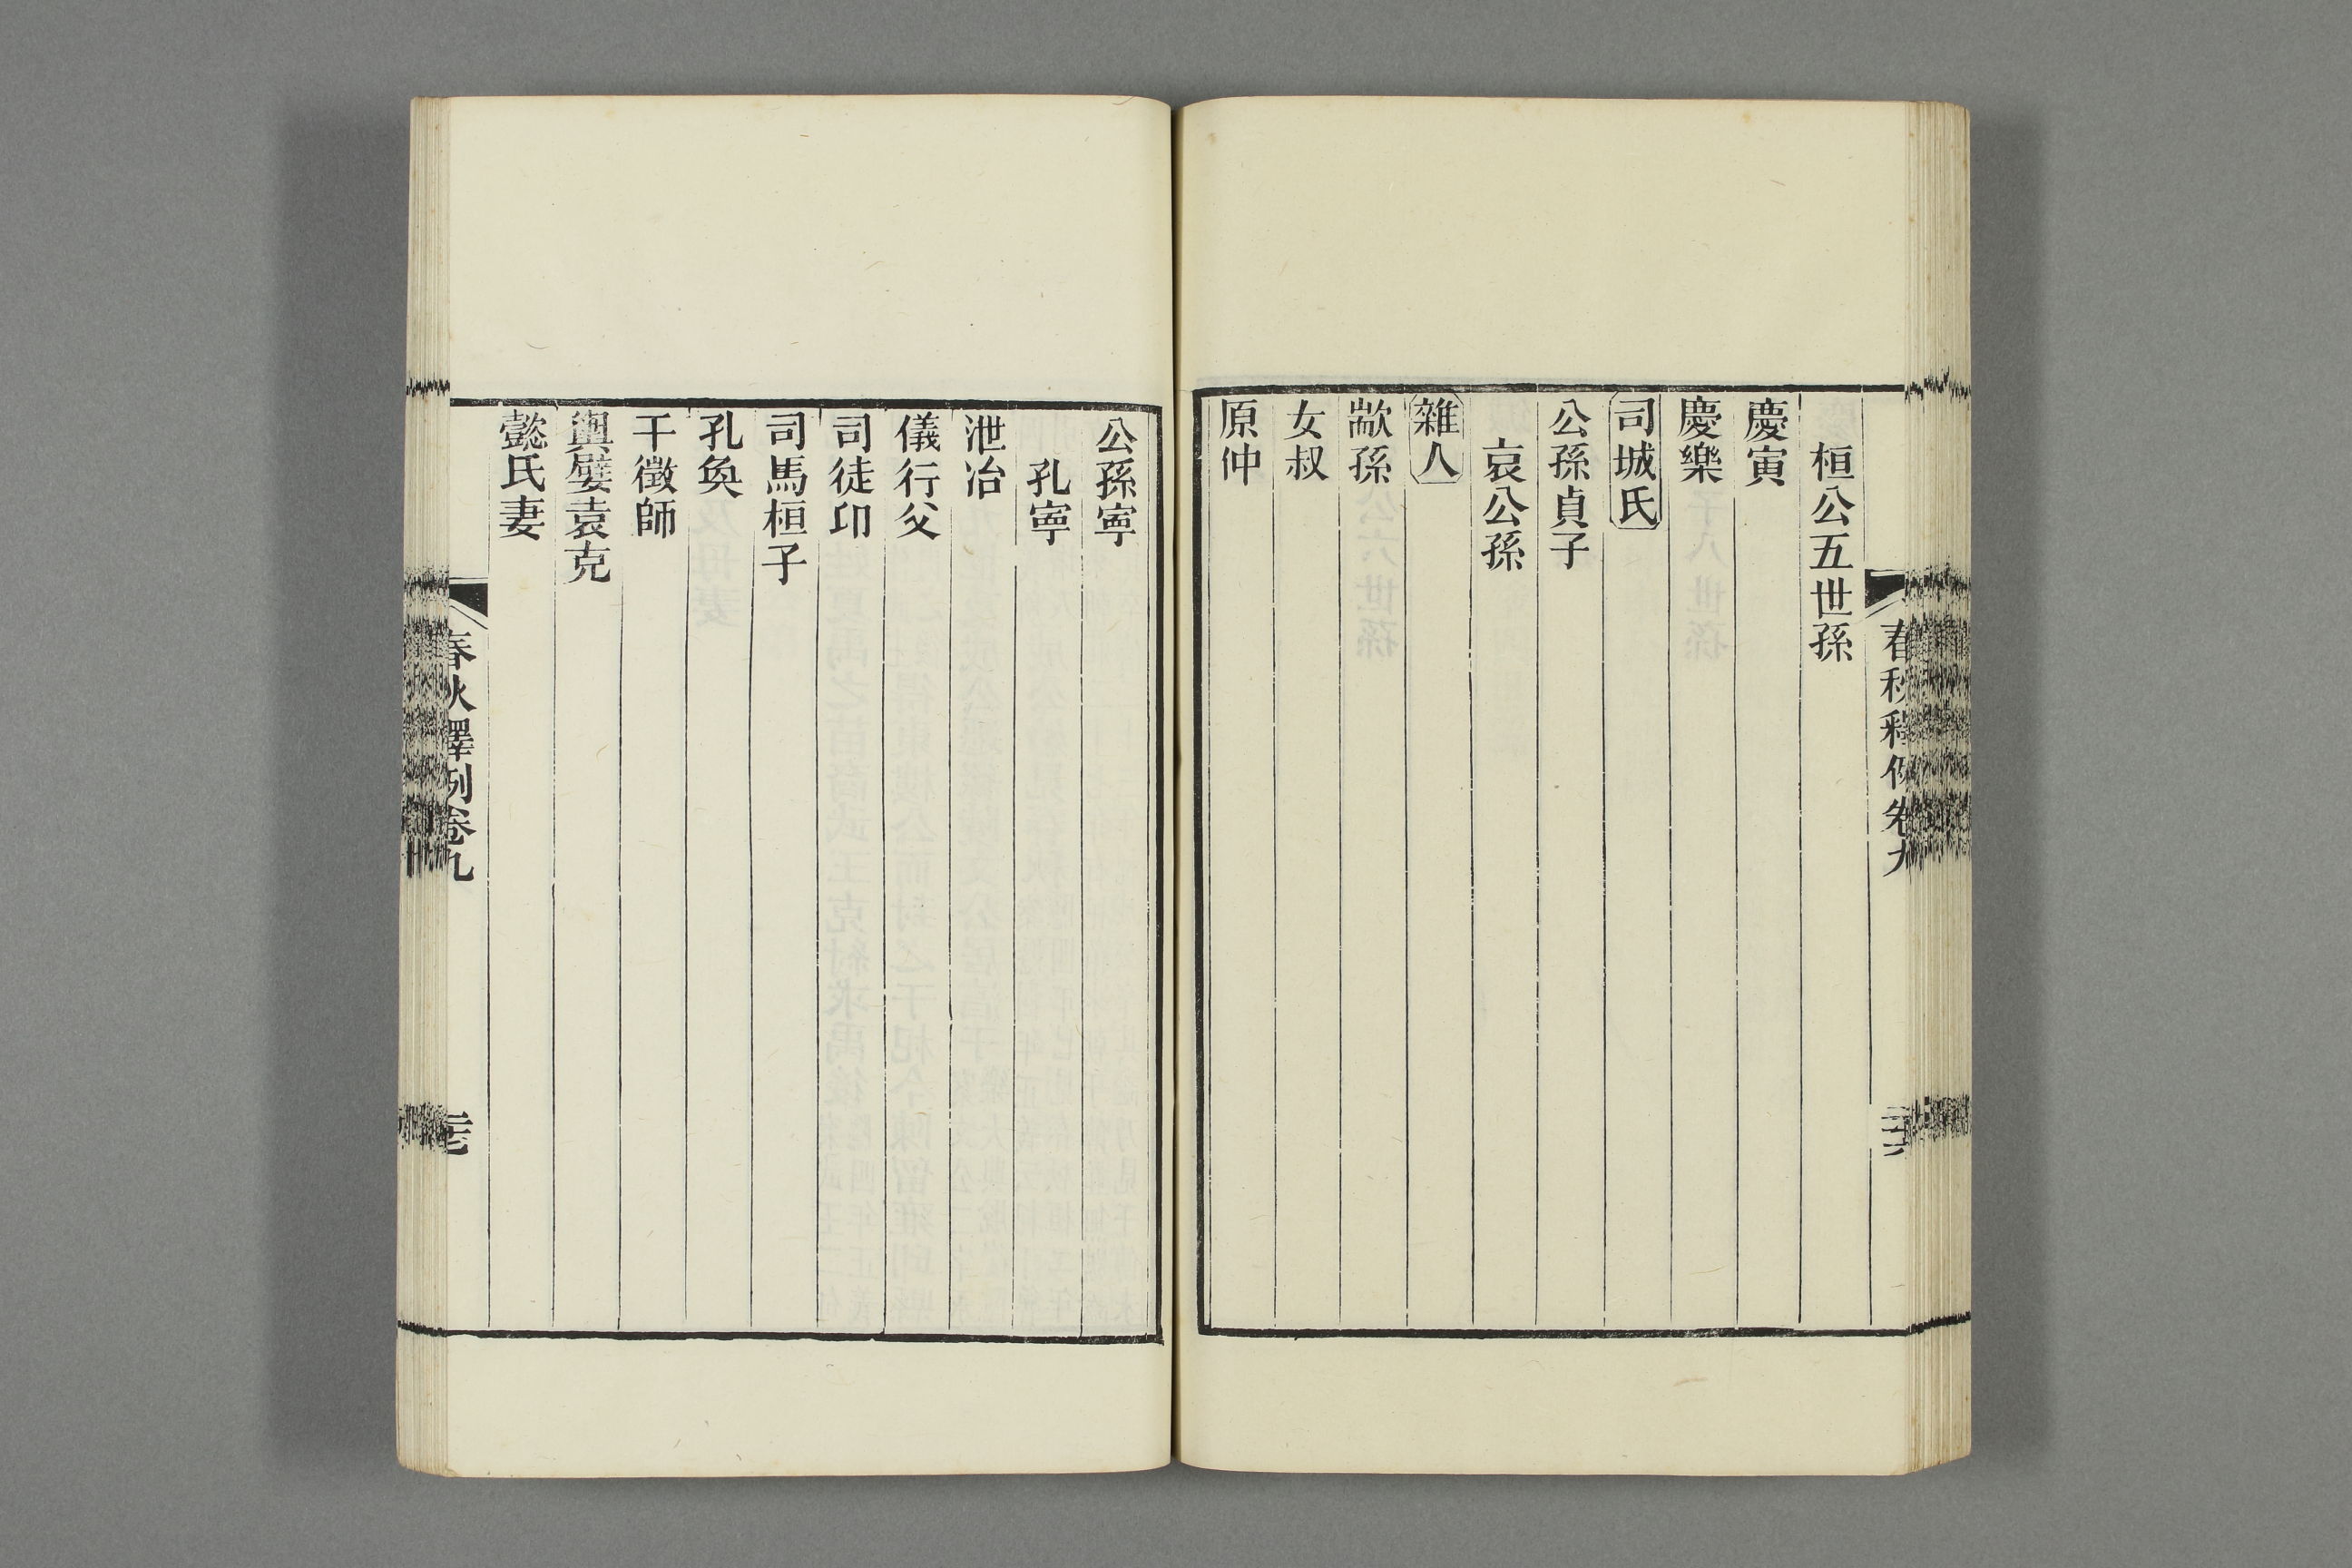 春秋釋例卷九
桓公五世孫
慶寅
慶樂
司城氏
公孫貞子
哀公孫
雜人
歂孫
女叔
原仲
公孫寧
孔寧
泄冶
儀行父
司徒卬
司馬桓子
孔奐
干徵師
輿嬖袁克
懿氏妻
春秋釋例卷九